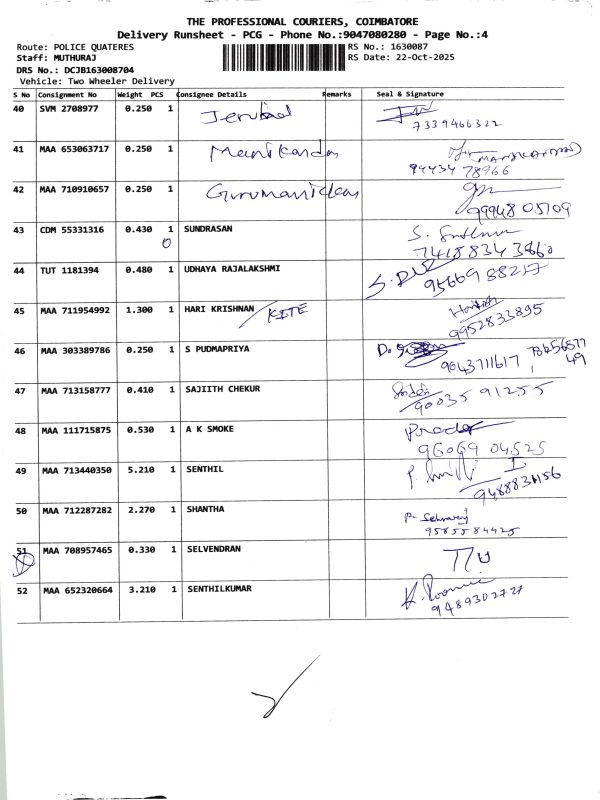 THE PROFESSIONAL COURIERS, COIMBATORE
Delivery Runsheet - PCG - Phone No.:9047080280 - Page No.:4
Route: POLICE QUATERES RS No.: 1630087
Staff: MUTHURAJ RS Date: 22-Oct-2025
DRS No.: DCJB163008704
Vehicle: Two Wheeler Delivery
S No Consignment No Weight PCS Consignee Details Remarks Seal & Signature
40 SVM 2708977 0.250 1
7339466322
41 MAA 653063717 0.250 1 Manikandan
94434 78966
42 MAA 710910657 0.250 1
99948 05109
43 CDM 55331316 0.430 1 SUNDRASAN
0 74188343860
44 TUT 1181394 0.480 1 UDHAYA RAJALAKSHMI
95669 88217
45 MAA 711954992 1.300 1 HARI KRISHNAN KITE
9952833895
46 MAA 303389786 0.250 1 S PUDMAPRIYA
9043711617
49
47 MAA 713158777 0.410 1 SAJIITH CHEKUR
90035 91255
48 MAA 111715875 0.530 1 A K SMOKE
96069 04525
49 MAA 713440350 5.210 1 SENTHIL
9488831156
50 MAA 712287282 2.270 1 SHANTHA
9585584425
51 MAA 708957465 0.330 1 SELVENDRAN
52 MAA 652320664 3.210 1 SENTHILKUMAR
9489302727